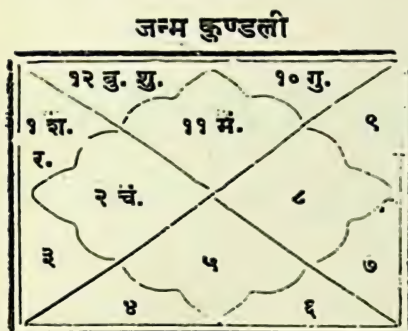 जन्म कुण्डली
१२ बु. शु. १० गु.
१ श. ११ मं. ९
र.
२ चं. ८
३ ५ ७
४ ६